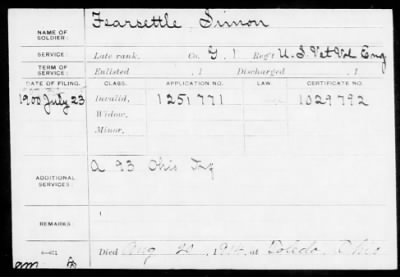 NAME OF SOLDIER: Fearsettle Simon
SERVICE: Late rank, Co. G. 1 Reg't U.S. Vet Vol Eng
TERM OF SERVICE: Enlisted , 1 Discharged , 1
DATE OF FILING. CLASS. APPLICATION NO. LAW. CERTIFICATE NO.
1900 July 23 Invalid, 1251771 1029792
Widow,
Minor,
ADDITIONAL SERVICES: A 93 Ohio Inf
REMARKS:
Died Aug , 191 , at Toledo, Ohio